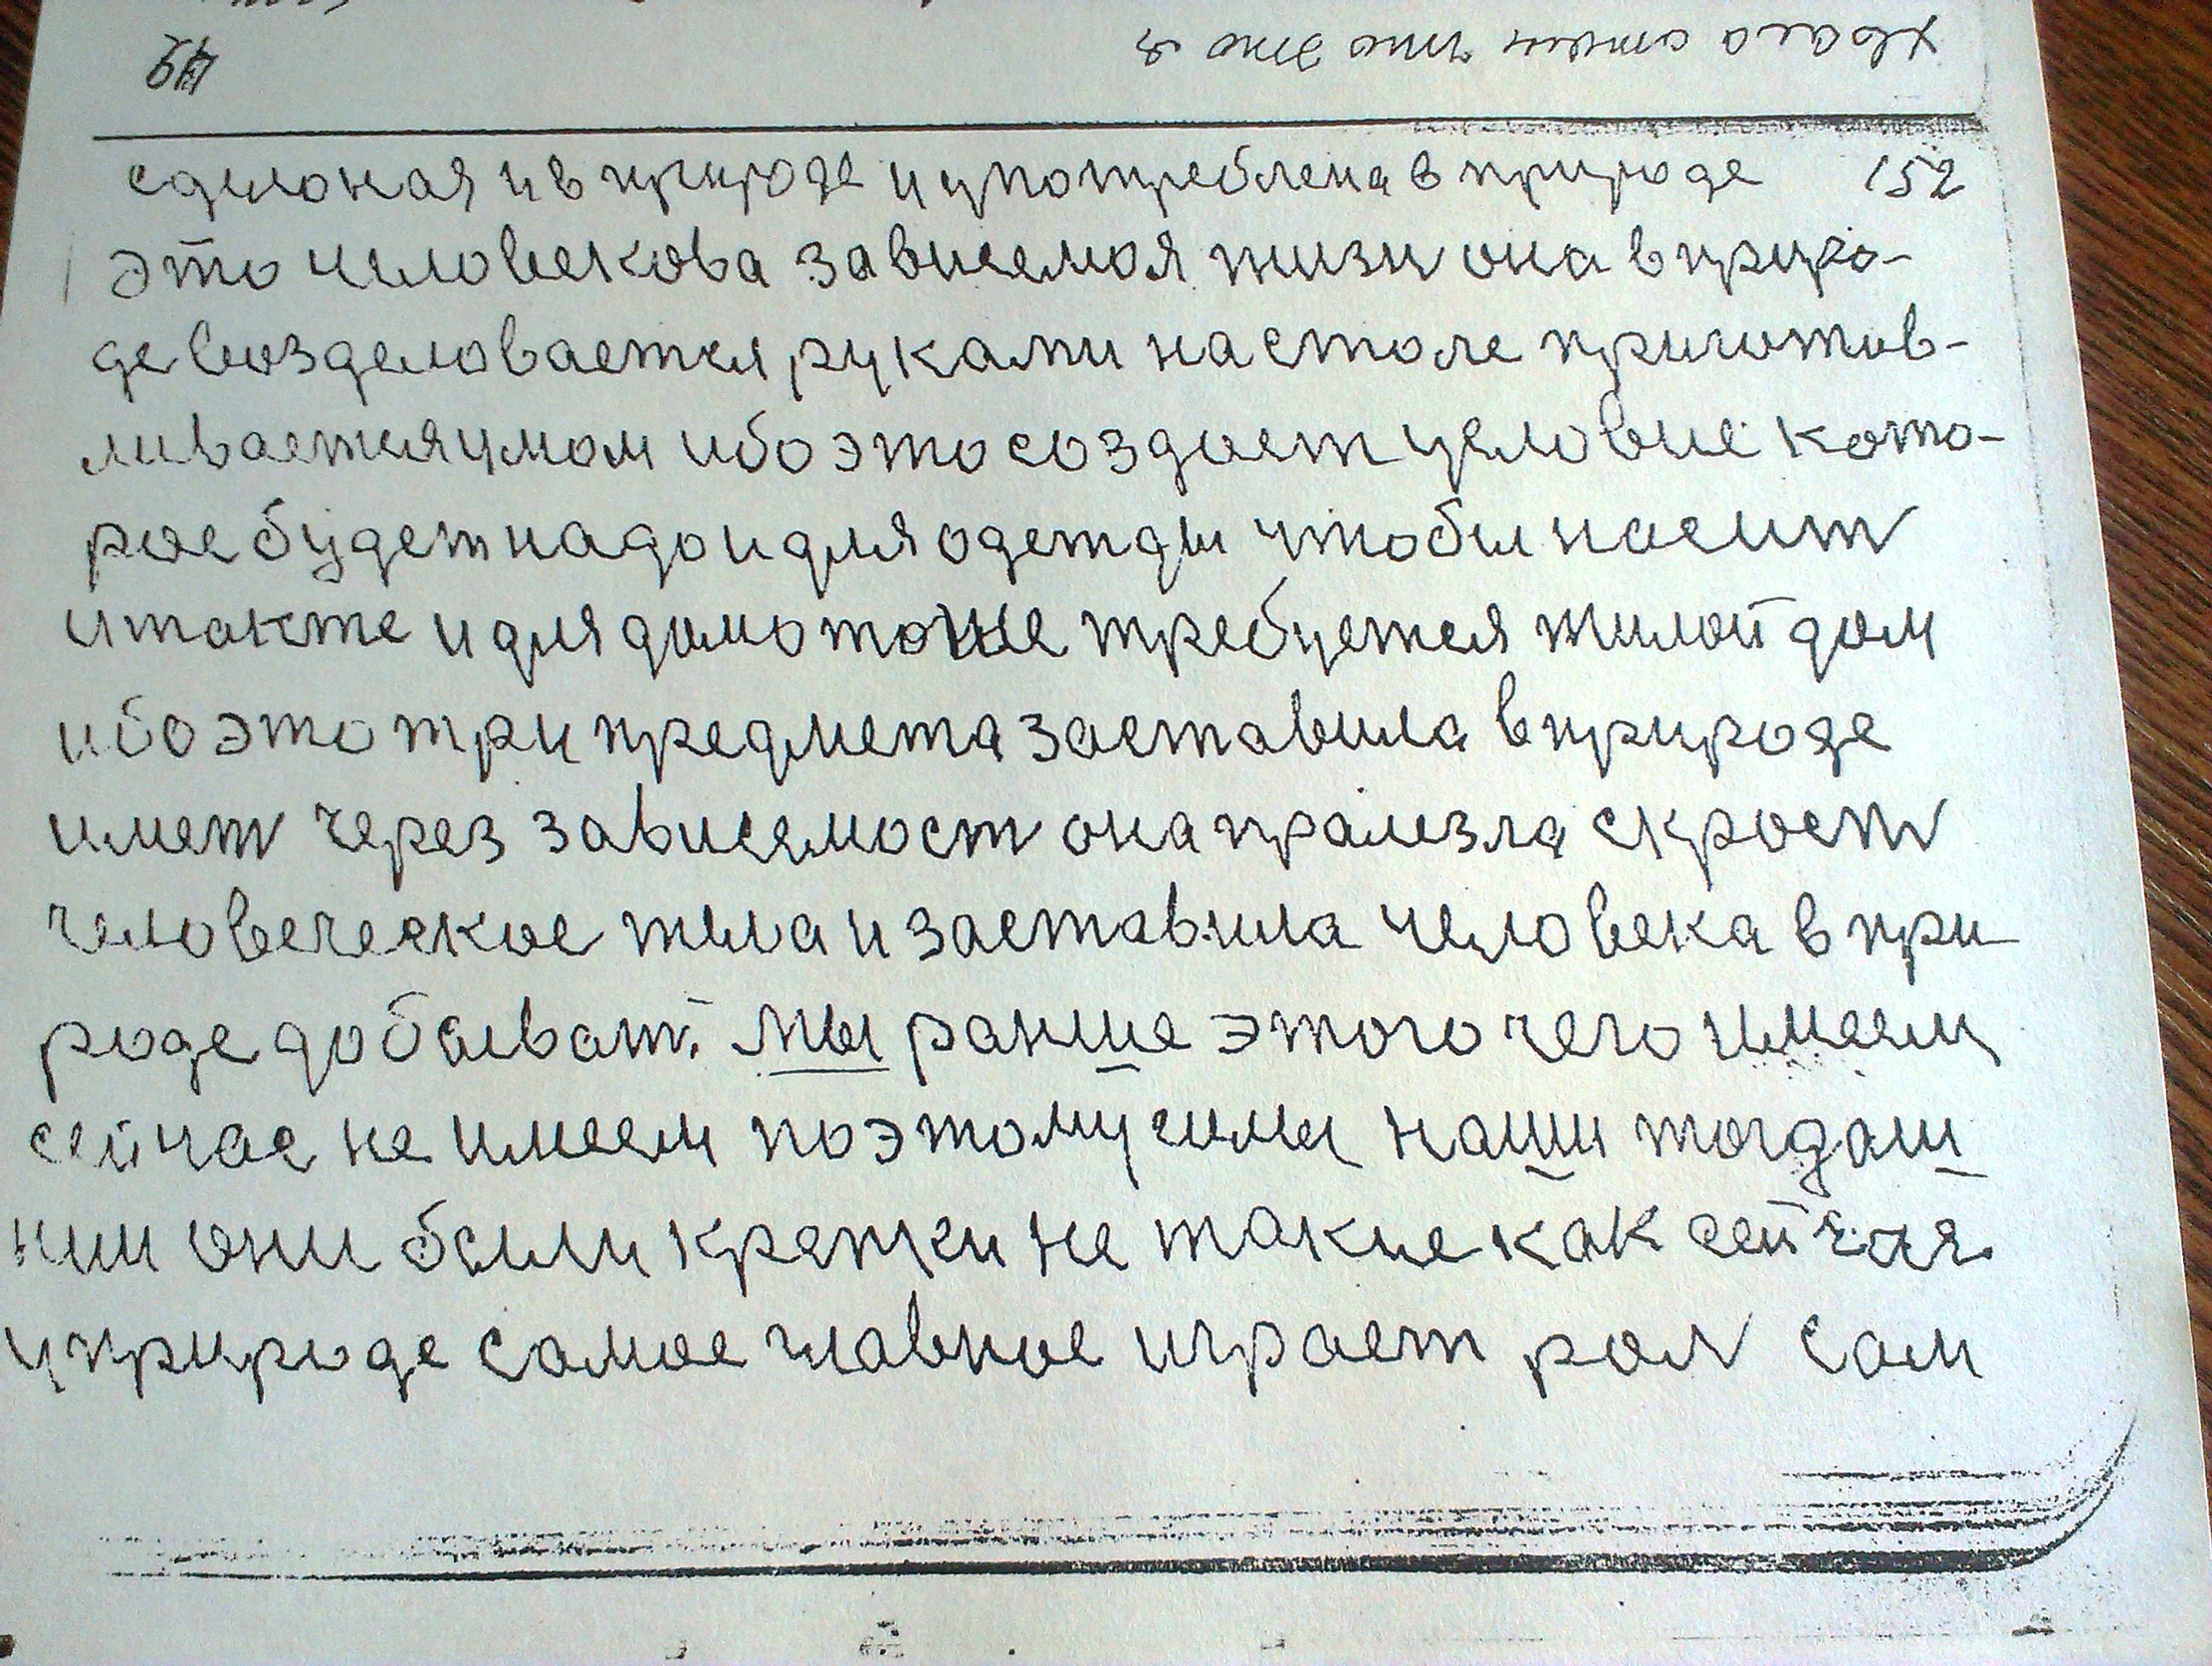 хвала
что это я
сделоная и в природе и употреблена в природе 152
это человекова зависемоя жизн она в приро-
де возделовается руками на столе приготов-
ливается умом ибо это создает условие кото-
рое будет надо и для одежды чтобы носит
и также и для дома тоже требуется жилой дом
ибо это три предмета заставила в природе
имет через зависемост она пралезла скрост
человеческое тела и заставила человека в при
роде добыват. мы ранше этого чего имеем
сейчас не имеем поэтому силы наши тогдаш
нии они были крепки не такие как сейчас
у природе самое главное играет рол сам